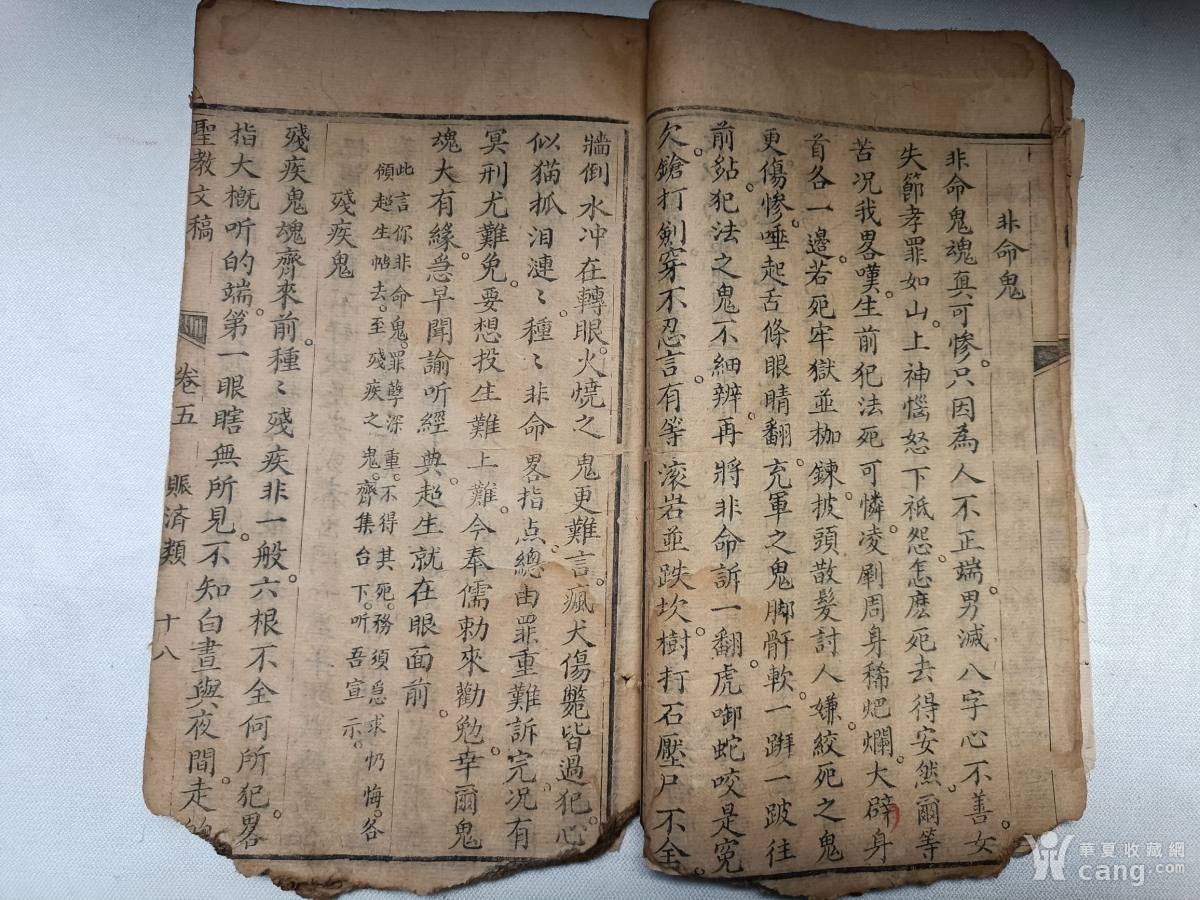 非命鬼
非命鬼魂真可慘。只因為人不正端。男滅八字心不善。女
失節孝罪如山。上神惱怒下祇怨。怎麽死去得安然。爾等
苦况我畧嘆。生前犯法死可憐。凌剮周身稀爛。大辟身
首各一邉。若死牢獄並枷鍊。披頭散髮討人嫌。絞死之鬼
更傷慘。唾起舌條眼睛翻。充軍之鬼脚骭軟。一跰一跛往
前跕。犯法之鬼不細辨。再將非命訴一翻。虎啣蛇咬是冤
欠。鎗打劍穿不忍言。有等滚岩並跌坎。樹打石壓尸不全。
牆倒水冲在轉眼。火燒之鬼更難言。瘋犬傷斃皆過犯。心
似猫抓泪漣〻。種〻非命畧指点。總由罪重難訴完。况有
冥刑尤難免。要想投生難上難。今奉儒勅來勸勉。幸爾鬼
魂大有緣。急早聞諭听經典。超生就在眼面前
此言你非命鬼。罪孽深重。不得其死。務須急求忏悔。各
領超生帖去。至殘疾之鬼。齊集台下。听吾宣示。
殘疾鬼
殘疾鬼魂齊來前。種〻殘疾非一般。六根不全何所犯。畧
指大概听的端。第一眼瞎無所見。不知白晝與夜間。走
聖教文稿 卷五 賑濟類 十八
華夏收藏網
cang.com